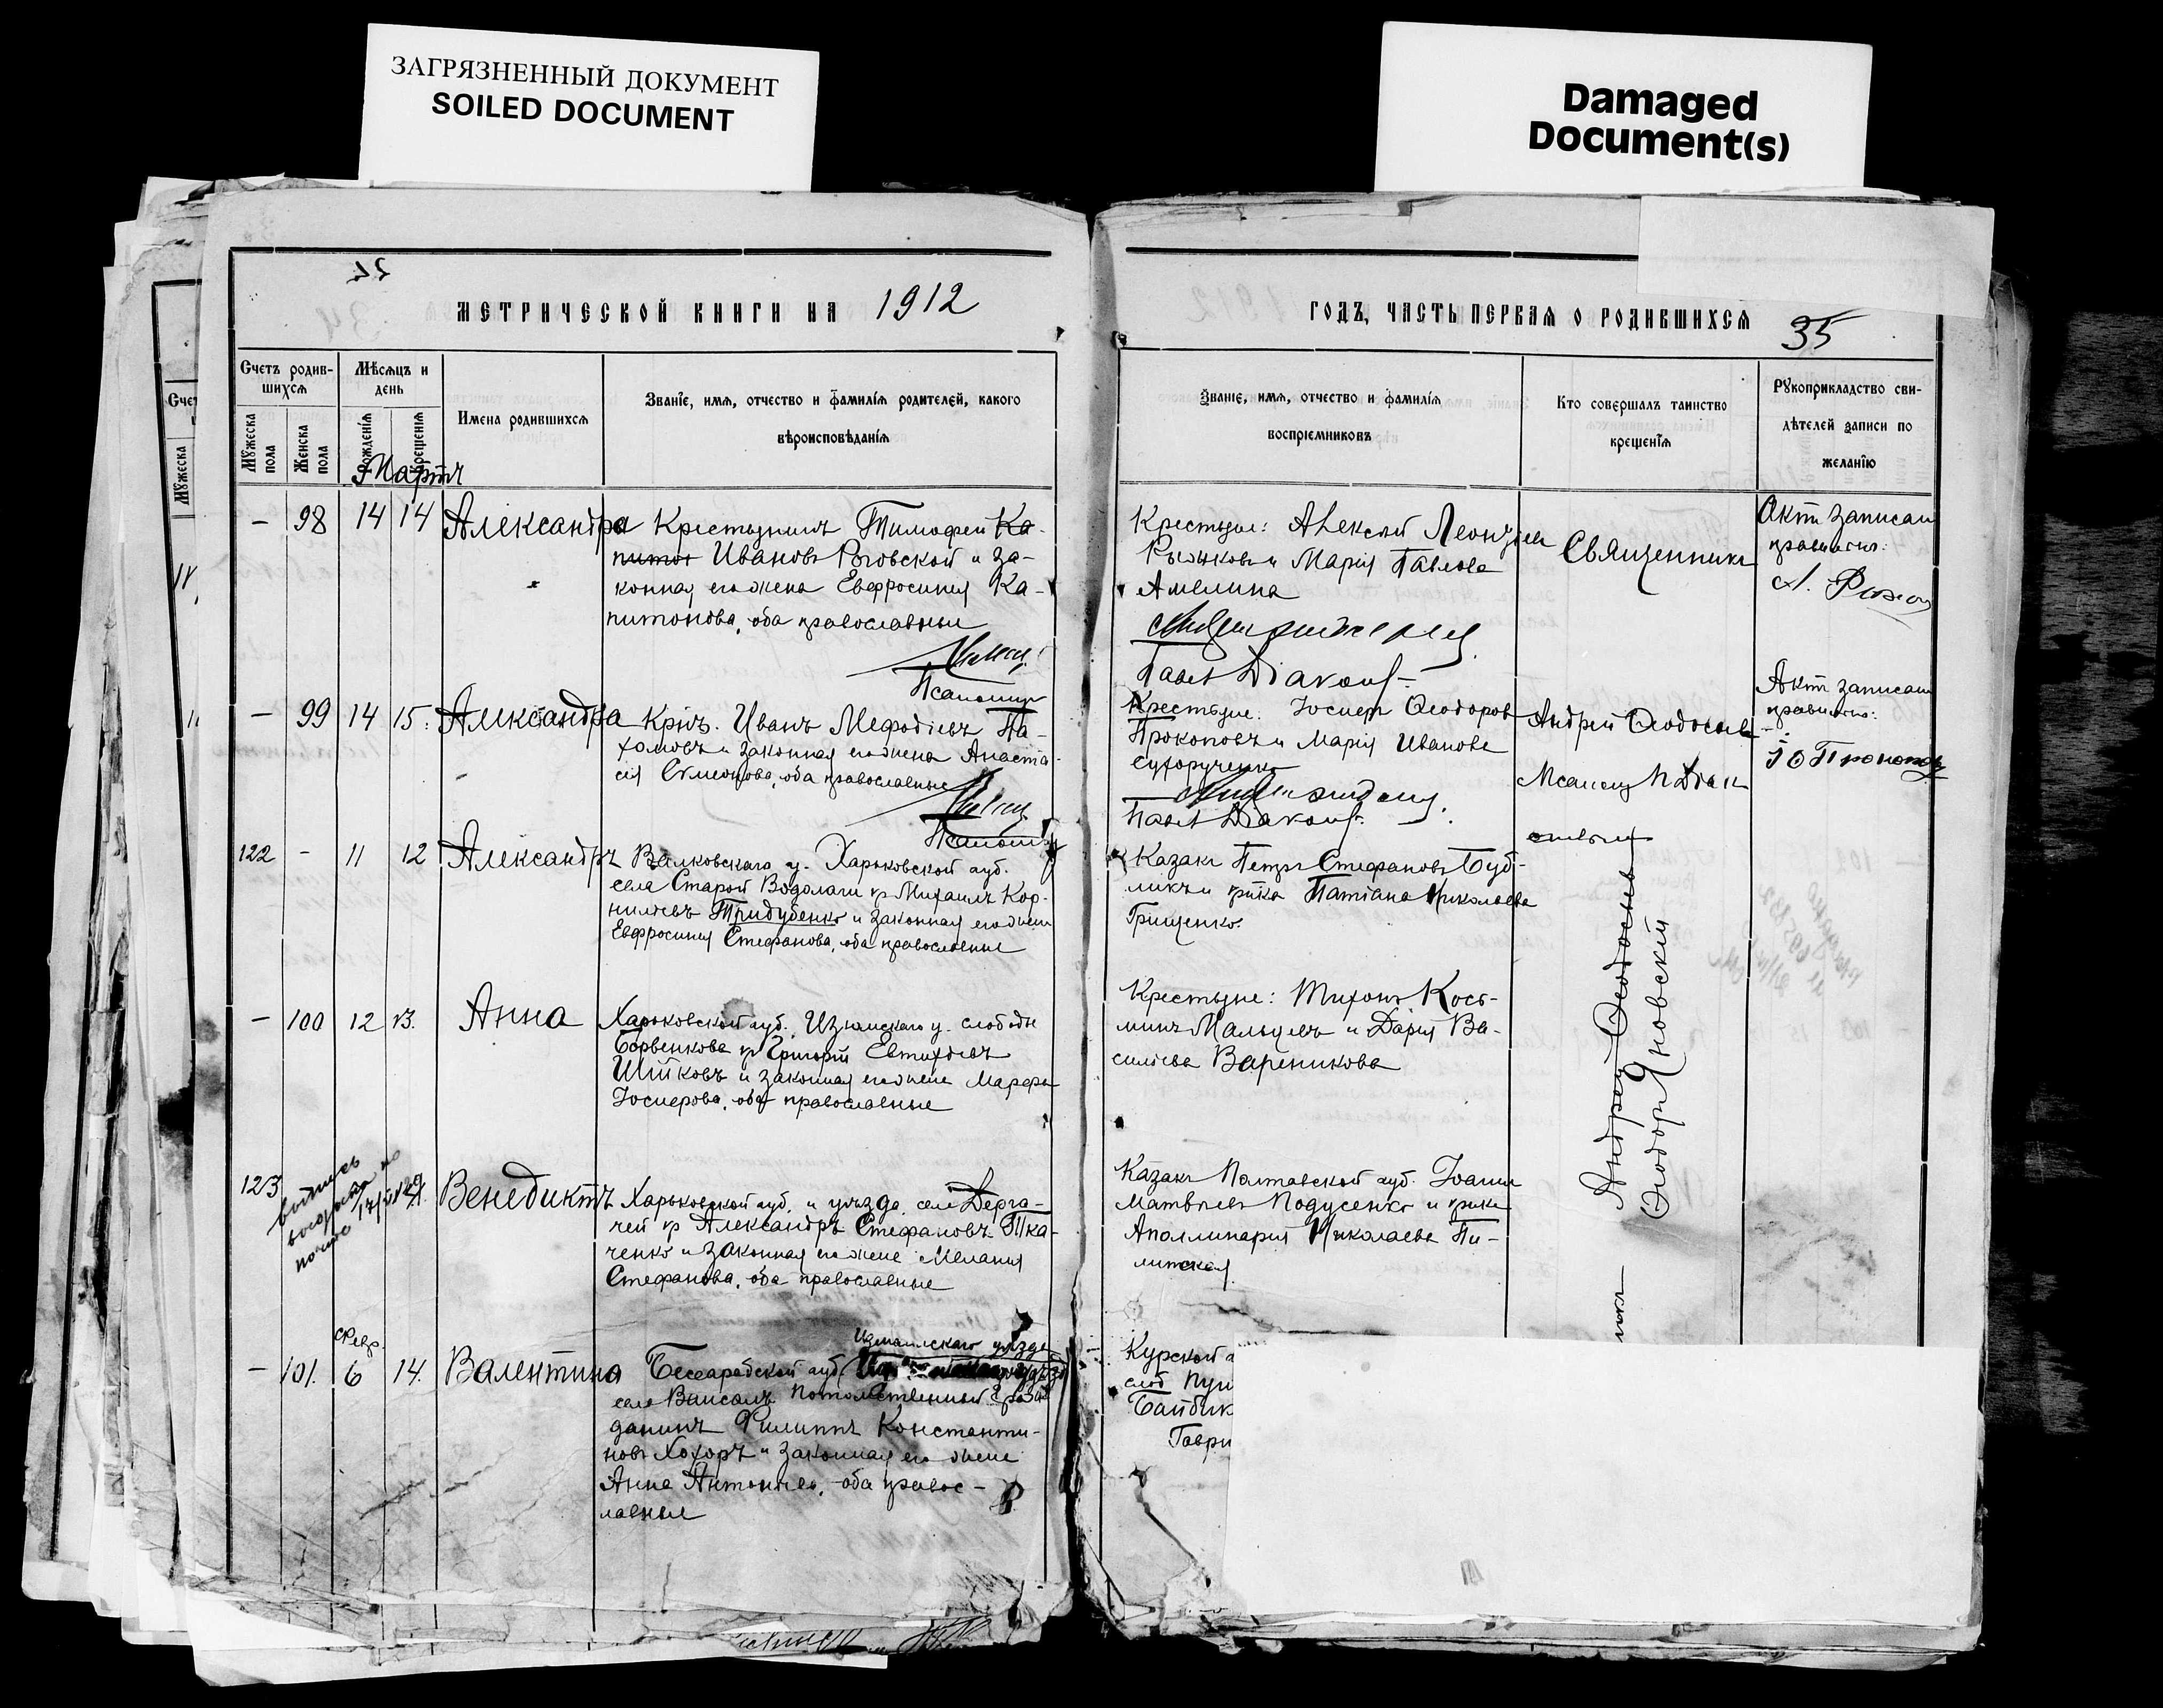 ЗАГРЯЗНЕННЫЙ ДОКУМЕНТ
SOILED DOCUMENT
Damaged
Document(s)
МЕТРИЧЕСКОЙ КНИГИ НА 1912
ГОДЪ, ЧАСТЬ ПЕРВАЯ О РОДИВШИХСЯ 35
Счетъ родив-
шихся
Мѣсяцъ и
день
Мужеска
пола
Женска
пола
рожденія
крещенія
Имена родившихся
Званіе, имя, отчество и фамилія родителей, какого
вѣроисповѣданія
Званіе, имя, отчество и фамилія
воспріемниковъ
Кто совершалъ таинство
крещенія
Рукоприкладство сви-
дѣтелей записи по
желанію
Мартъ
– 98 14 14 Александра
Крестьянинъ Тимофей Ка-
питон Ивановъ Роговской и за-
конная его жена Евфросинія Ка-
питонова, оба православные
Псаломщ
Крестьяне: Алексѣй Леонтіев
Рыжковъ и Марія Павлова
Амелина
Павел Діаконъ
Священникъ
Актъ записанъ
правильно:
– 99 14 15. Александра
Крнъ. Иванъ Мефодіевъ Па-
хомовъ и законная его жена Анаста-
сія Симеонова, оба православные
Псаломщ
Крестьяне: Іосифъ Ѳеодоров
Прокоповъ и Марія Иванова
Сухорученко
Павел Діаконъ
Андрей Ѳеодосьев
Актъ записанъ
правильно:
122 – 11 12 Александръ
Валковскаго у. Харьковской губ.
села Старой Водолаги кр Михаилъ Кор-
ниліевъ Тридубенко и законная его жена
Евфросинія Стефанова, оба православные
Казакъ Петръ Стефановъ Буб-
ликъ и крнка Татіана Николаева
Грищенко.
Андрей Ѳеодосьевъ
Ѳеодоръ Яновскій
– 100 12 13. Анна
Харьковской губ. Изюмскаго у. слободы
Барвенкова кр Григорій Евтихіевъ
Шійковъ и законная его жена Марфа
Іосифова, оба православные
Крестьяне: Тихонъ Кось-
минъ Мальцевъ и Дарія Ва-
сильева Вареникова
123 Венедиктъ
Харьковской губ. и уѣзда села Дерга-
чей кр Александръ Стефановъ Тка-
ченко и законная его жена Меланія
Стефанова, оба православные
Казакъ Полтавской губ. Іоаннъ
Матвѣевъ Подусенко и крнка
Аполлинарія Николаева Пи-
литская
Февр.
– 101. 6 14. Валентина
Измаилскаго уѣзда
Бессарабской губ
села Ваисалъ потомственный гра-
данинъ Филиппъ Константи-
новъ Хохоръ и законная его жена
Анна Антоніева, оба правос-
лавные
Курской г
слоб
Байбик
Гаври